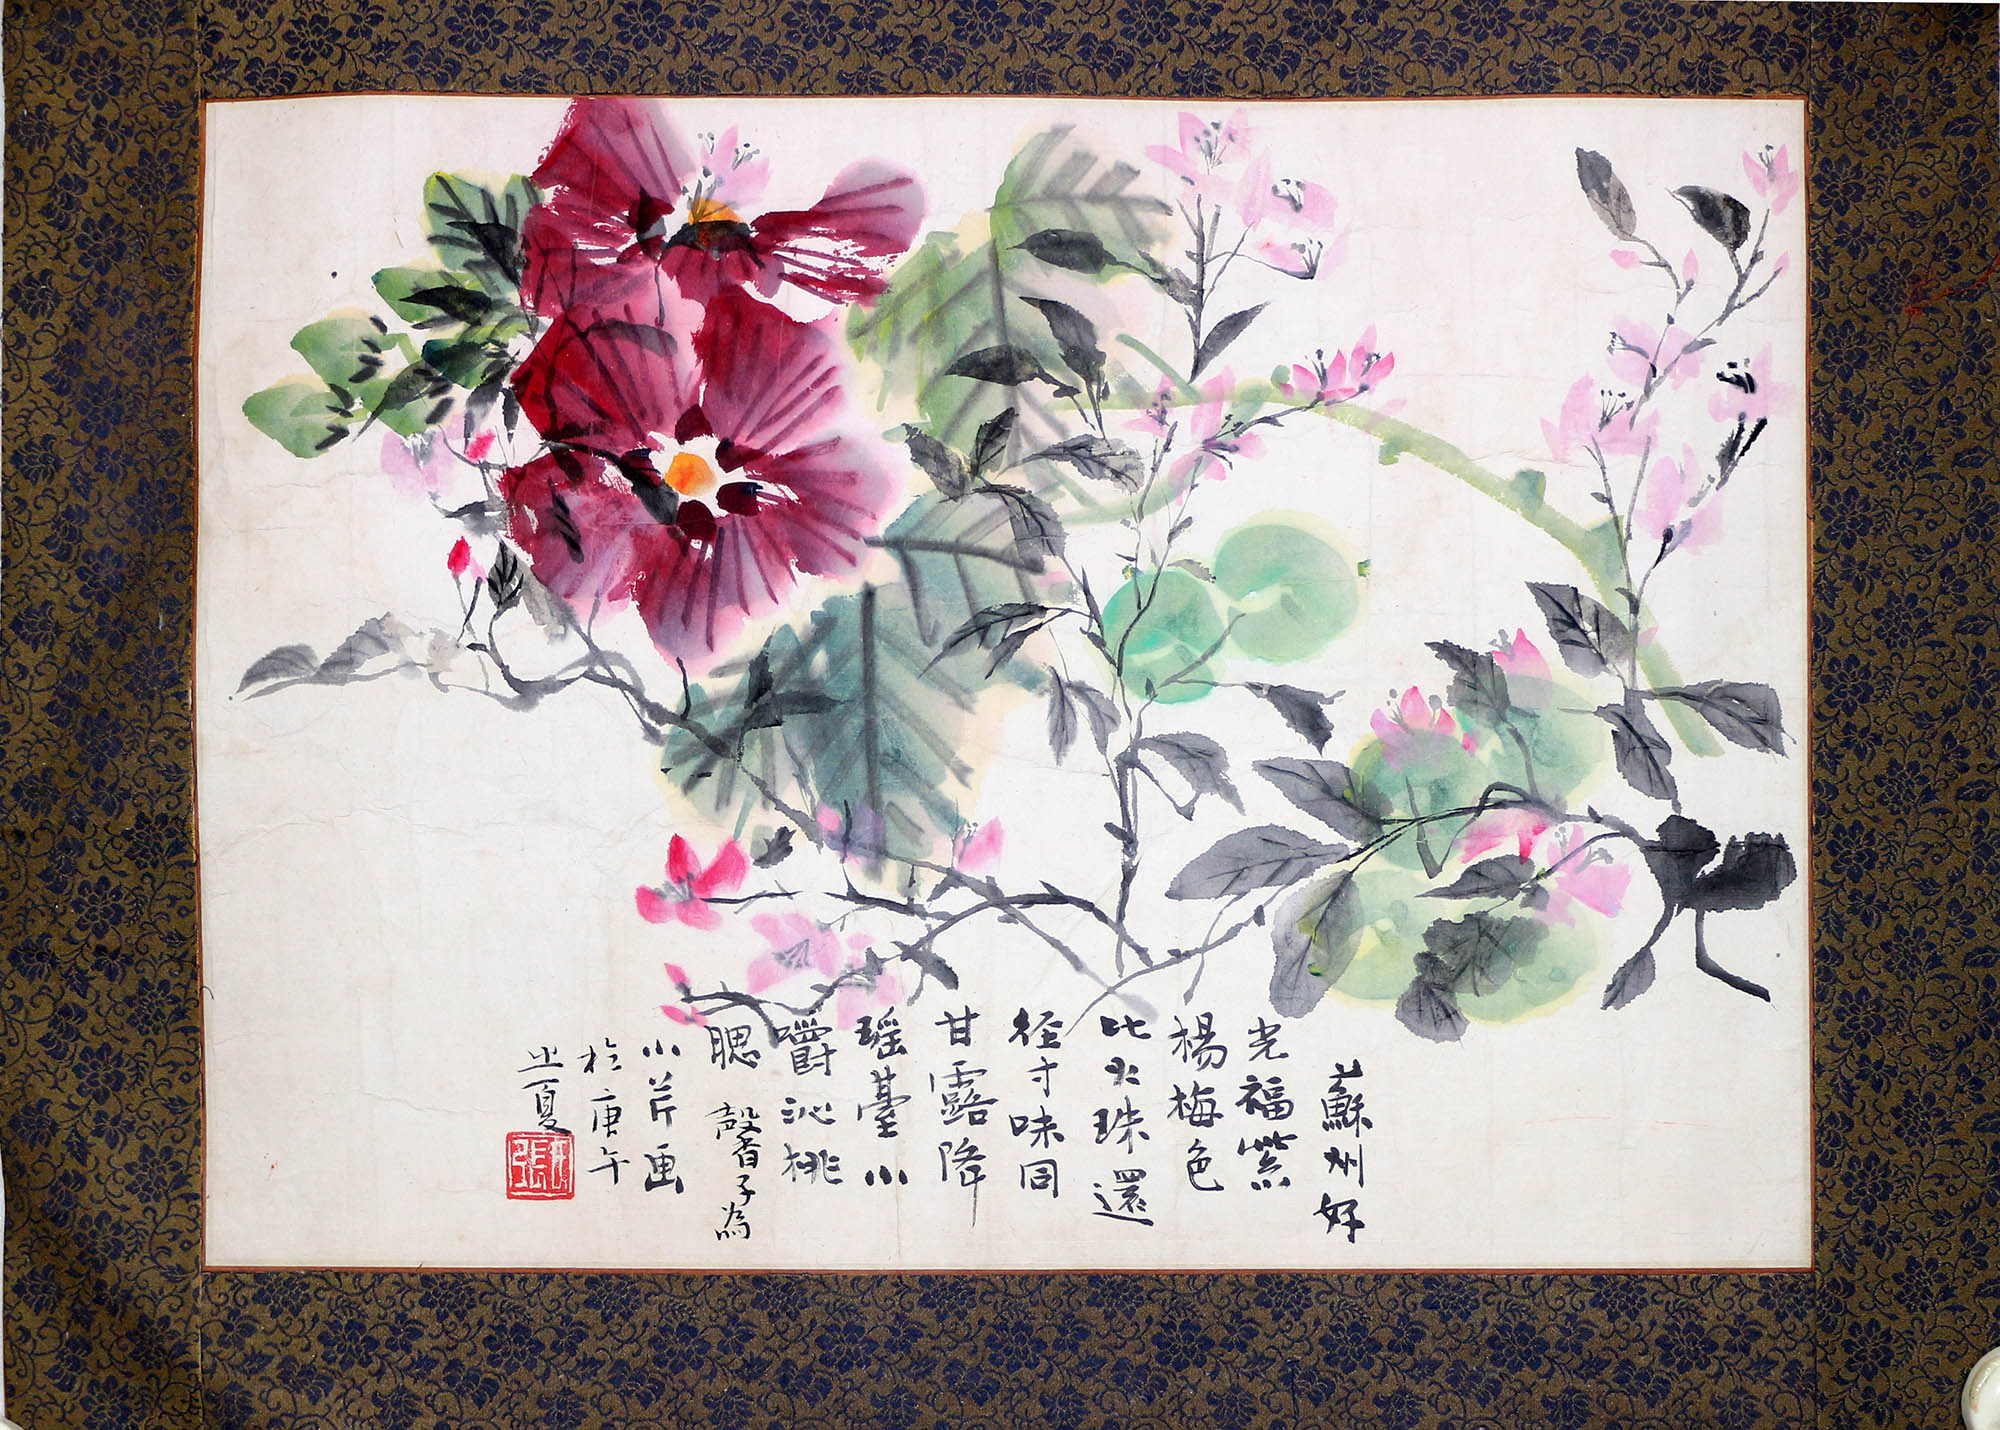 蘇州好
光福紫
楊梅色
比火珠還
徑寸味同
甘露降
瑶臺小
嚼沁桃
腮 馨子為
小芹画
於庚午
之夏